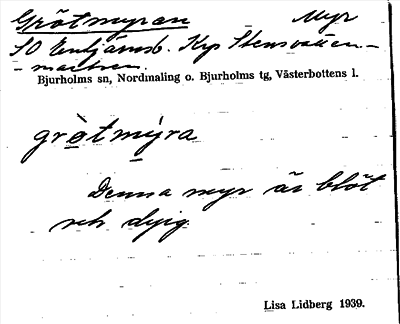 Grötmyran Myr
SO Enhjämsb. Krp Stensvatten-
Bjurholms sn, Nordmaling o. Bjurholms tg, Västerbottens l.
grö̀tmýra
Denna myr är blöt
och dyig.
Lisa Lidberg 1939.